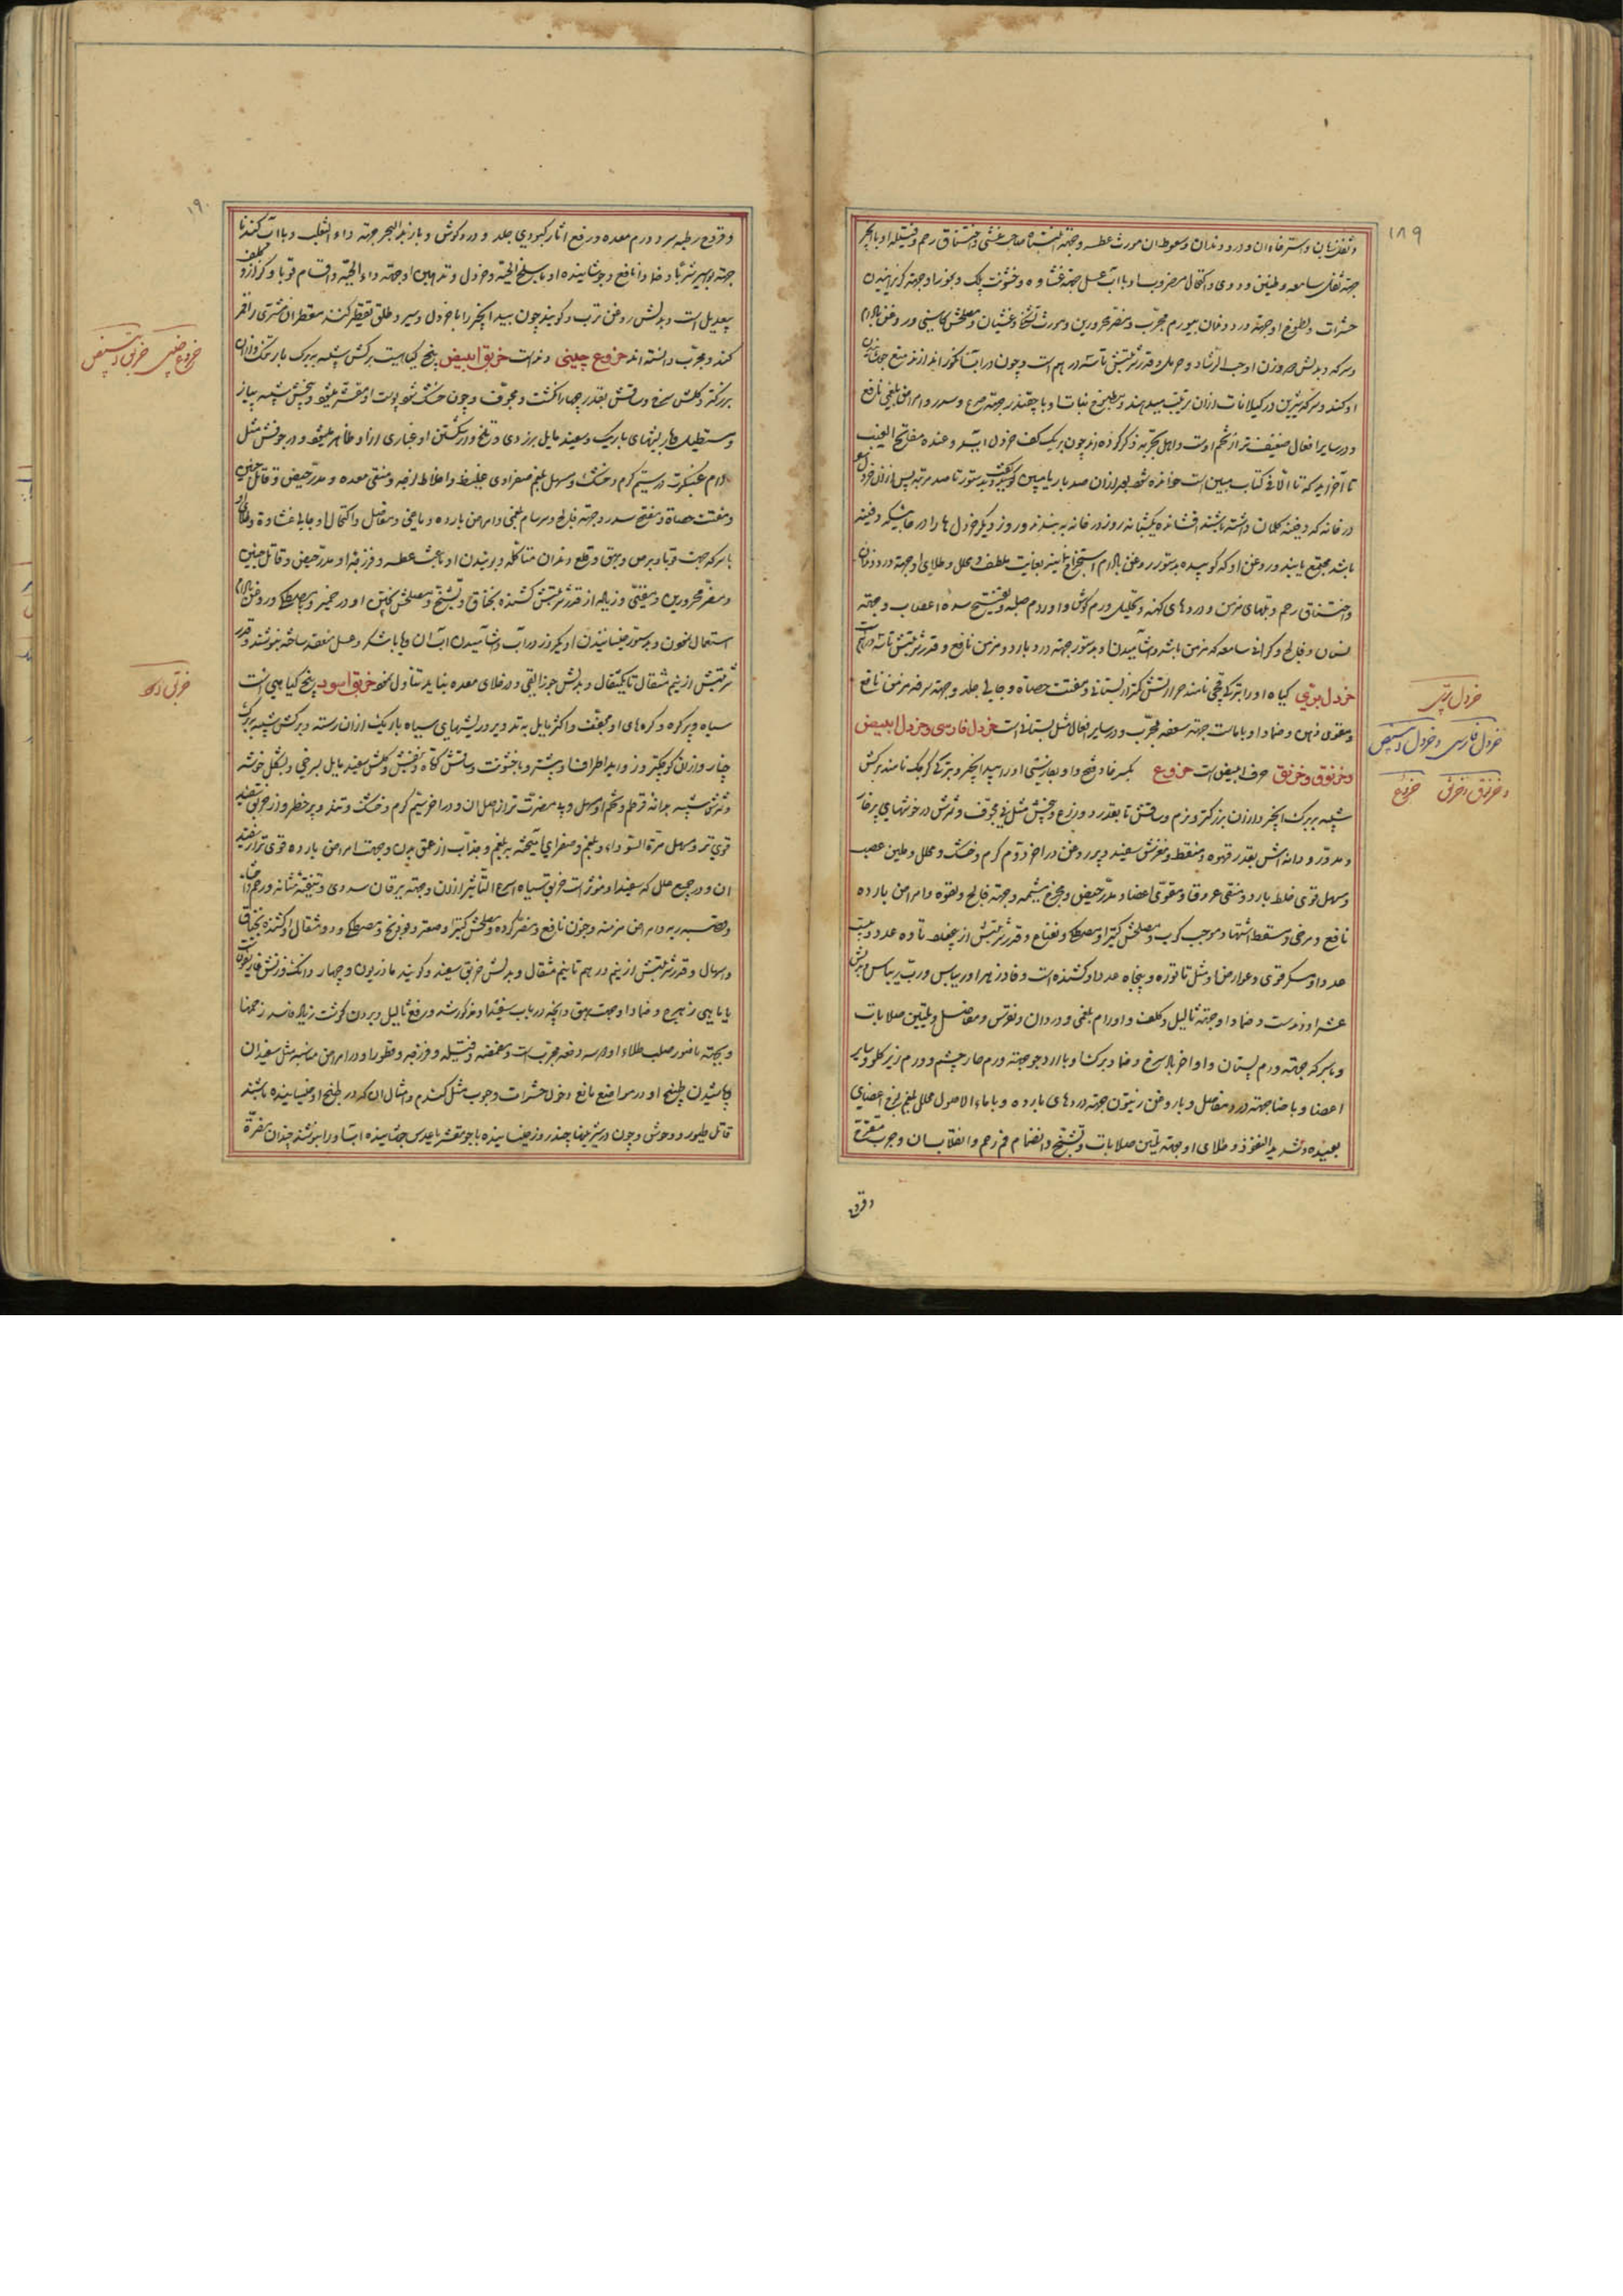 ۱۸۹
و ثقل زبان و استرخاء آن و درد دندان و سعوط آن مورث عطسه و جهة
جهة ثقل سامعه و طنین و دوی و اکتحال و با آب عسل جهة غشاوه و خشونت پلک و بخور او جهة گریزانیدن
حشرات و لطوخ او جهة درد دندان مجرب و مضر محرورین و مورث تشنگی و غثیان و مصلحش کاسنی و روغن بادام
و سرکه و بدلش هم وزن او حب الرشاد و حرمل و قدر شربتش تا سه درهم است و چون در آب انگور اندازند منع
او کند
و در سایر افعال ضعیف‌تر از تخم اوست و اهل تجربه ذکر کرده‌اند چون بر یک کف خردل آیه و عنده مفاتح الغیب
تا آخر آیه که تا الا فی کتاب مبین است خوانده شود بعد از آن صد بار یا مبین گویند
در خانه که دفینه گمان داشته باشند افشانده یک شبانه روز در خانه به بندند و روز دیگر خردل ها را در جائیکه دفینه
باشد مجتمع یابند و روغن او که کوبیده بدستور روغن بادام استخراج نمایند بغایت ملطف و محلل و طلای او جهة درد دندان
و اختناق رحم و تبهای مزمن و دردهای کهنه و تحلیل ورم گوش و اورام صلبه و تفتیح سده اعصاب و جهة
نسیان و فالج و گرانی سامعه که مزمن باشد و آشامیدن او بدستور جهة درد بارد و مزمن نافع و قدر شربتش تا سه درهم
خردل بری گیاه او را بترکی قچی نامند حرارتش کمتر از بستانی و مفتت حصاة و جالی جلد و جهة سرفه مزمن نافع
و مقوی ذهن و ضماد او با ماست جهة سعفه مجرب و در سایر افعال مثل بستانی است خردل فارسی و خردل ابیض
و خرنوق و خرنق حرف ابیض است خروع بکسر خا و فتح واو بفارسی او را بید انجیر و بترکی کرچک نامند برگش
شبیه ببرگ انجیر و از آن بزرگتر و نرم و ساقش تا بقدر دو زرع و بیخش مثل نی مجوف و ثمرش در خوشهای پرخار
و مدور و دانه اش بقدر قهوه و منقط و مغزش سفید و پر روغن در آخر دوم گرم و خشک و محلل و ملین عصب
و مسهل قوی خلط بارد و منقی عروق و مقوی اعضا و مدر حیض و مخرج مشیمه و جهة فالج و لقوه و امراض بارده
نافع و مرخی و مسقط اشتها و موجب کرب و مصلحش کتیرا و مصطکی و نعناع و قدر شربتش از ده عدد و بیست
عدد او مسکر قوی و عوارض او مثل تاتوره و پنجاه عدد او کشنده است و فادزهر او ریباس و رب ریباس
عشر او دند است و ضماد او جهة ثالیل و کلف و اورام بلغمی و نقرس و مفاصل و تلیین صلابات
و با سرکه جهة ورم پستان و اواخر باد سرخ و ضماد برگ او با آرد جو جهة ورم حار چشم و ورم زیر گلو و سایر
اعضا و با حنا جهة درد مفاصل و با روغن زیتون جهة دردهای بارده و با ماء الاصول محلل بلغم لزج اعضای
بعیده و شدید النفوذ و طلای او جهة تلیین صلابات و تشنج و انضمام فم رحم و انقلاب آن و جرب متقرح
و قروح
خردل بری
خردل فارسی و خردل ابیض
و خرنوق و خرنق خروع
۱۹۰
و قروح رطبه سر و ورم معده و رفع آثار کبودی جلد و درد گوش و با زبد البحر جهة داء الثعلب و با آب گندنا
جهة بواسیر شربا و ضمادا نافع و جوشانیده او با سلخ الحیة و خردل و تدهین او جهة داء الحیة و اقسام قوبا
بیعدیل است و بدلش روغن ترب و گویند چون بید انجیر را با خردل و سیر و طلق تقطیر کنند مقطر آن مشتری را قمر
کند و مجرب دانسته اند خروع چینی دند است خربق ابیض بیخ گیاهیست برگش شبیه ببرگ بارتنگ و از آن
بزرگتر و گلش سرخ و ساقش بقدر چهار انگشت و مجوف و چون خشک شود پوست او مقشر میشود و بیخش شبیه به پیاز
مستطیل با ریشهای باریک و سفید مایل بزردی و تلخ و در شکستن او غباری از او ظاهر میشود و در جوفش مثل
دام عنکبوت در سیم گرم و خشک و مسهل بلغم صفراوی غلیظ و اخلاط لزجه و منقی معده و مدر حیض و قاتل جنین
و مفتت حصاة و مفتح سدد و جهة فالج و سرسام بلغمی و امراض بارده دماغی و مفاصل و اکتحال او جالی غشاوه و طلای او
با سرکه جهت قوبا و برص و بهق و قلع دندان متأکله و بوئیدن او باعث عطسه و فرزجه او مدر حیض و قاتل جنین
و مضر محرورین و مغثی و زیاده از قدر شربتش کشنده بخناق و تشنج و مصلحش پختن او در خمیر و مصطکی و روغن بادام
استعمال نمودن و بدستور خیسانیدن او یکروز در آب و آشامیدن آب آن و یا با شکر و عسل منعقد ساخته بنوشند و قدر
شربتش از نیم مثقال تا یکمثقال و بدلش جوز القی و در خلای معده نباید تناول نمود خربق اسود بیخ گیاهی است
سیاه و پر گره و گره های او مجوف و اکثر مایل بتدویر و ریشهای سیاه باریک از آن رسته و برگش شبیه ببرگ
چنار و از آن کوچکتر و زواید اطراف او بیشتر و با خشونت و ساقش کوتاه و بنفش و گلش سفید مایل بسرخی و بشکل خوشه
و ثمرش شبیه بدانه قرطم و تخم او مسهل و بی مضرت تر از اصل آن و در آخر سیم گرم و خشک و تند و پر خطر و از خربق سفید
قوی تر و مسهل مرة السوداء و بلغم و صفرای آمیخته ببلغم و جذاب از عمق بدن و جهت امراض بارده قوی تر از سفید
آن و در جمیع علل که سفید او موثر است خربق سیاه اسرع التأثیر از آن و جهة یرقان سددی و تنقیه مثانه و رحم
و امراض مزمنه و جنون نافع و مضر گرده و مصلحش کتیرا و صعتر و فودنج و مصطکی و دو مثقال او کشنده بخناق
و اسهال و قدر شربتش از نیم درهم تا نیم مثقال و بدلش خربق سفید و گویند مازریون و چهار دانگ وزنش غاریقون
و ضماد او جهت بهق و آنچه در باب سفید او مذکور شد و رفع ثالیل و بردن گوشت زیاده فاسد زخمها
و جهة ناصور صلب طلاء او در سه دفعه مجرب است و مضمضه و فتیله و فرزجه و قطور او در امراض مناسبه مثل سفید آن
و پاشیدن طبیخ او در مواضع مانع دخول حشرات و حبوب مثل گندم و امثال آن که در طبیخ او خیسانیده باشند
قاتل طیور و وحوش و چون چند روز خیسانیده با جو مقشر یا عدس جوشانیده آب او را بنوشند
خروع چینی خربق ابیض
خربق اسود